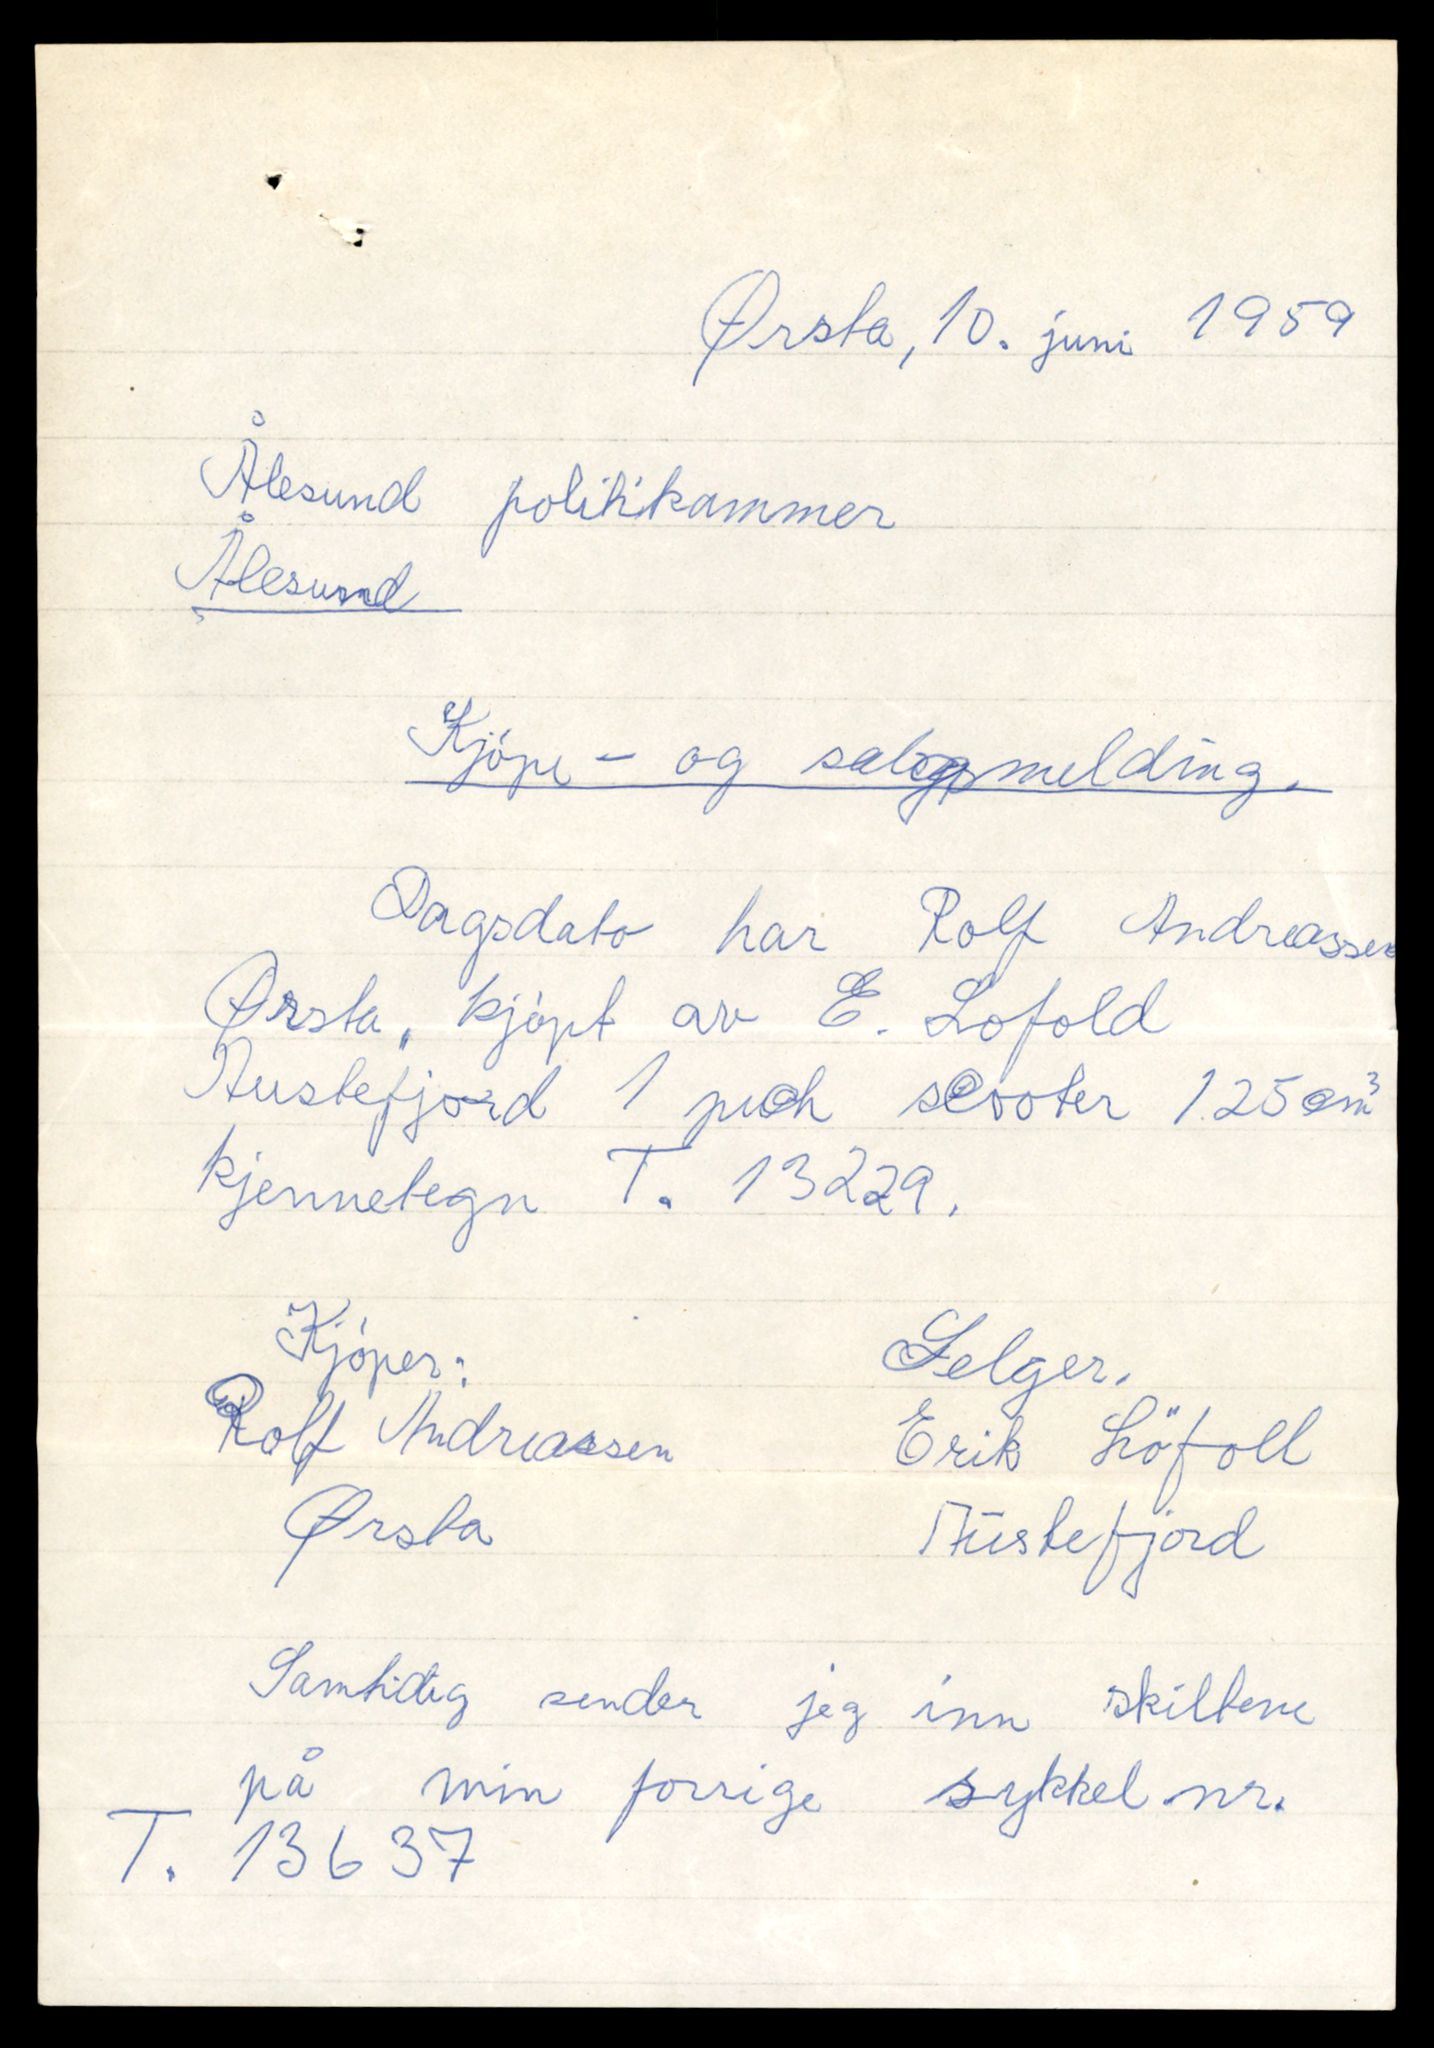 Ørsta, 10. juni 1959
Ålesund politikammer
Ålesund
Kjöpe- og salgsmelding.
Dagsdato har Rolf Andreassen
Ørsta, kjöpt av E. Lofold
Austefjord 1 puch scooter 125 cm³
kjennetegn T. 13229.
Kjöper:
Rolf Andreassen
Ørsta
Selger.
Erik Löfoll
Austefjord
Samtidig sender jeg inn skiltene
på min forrige sykkel nr.
T. 13637